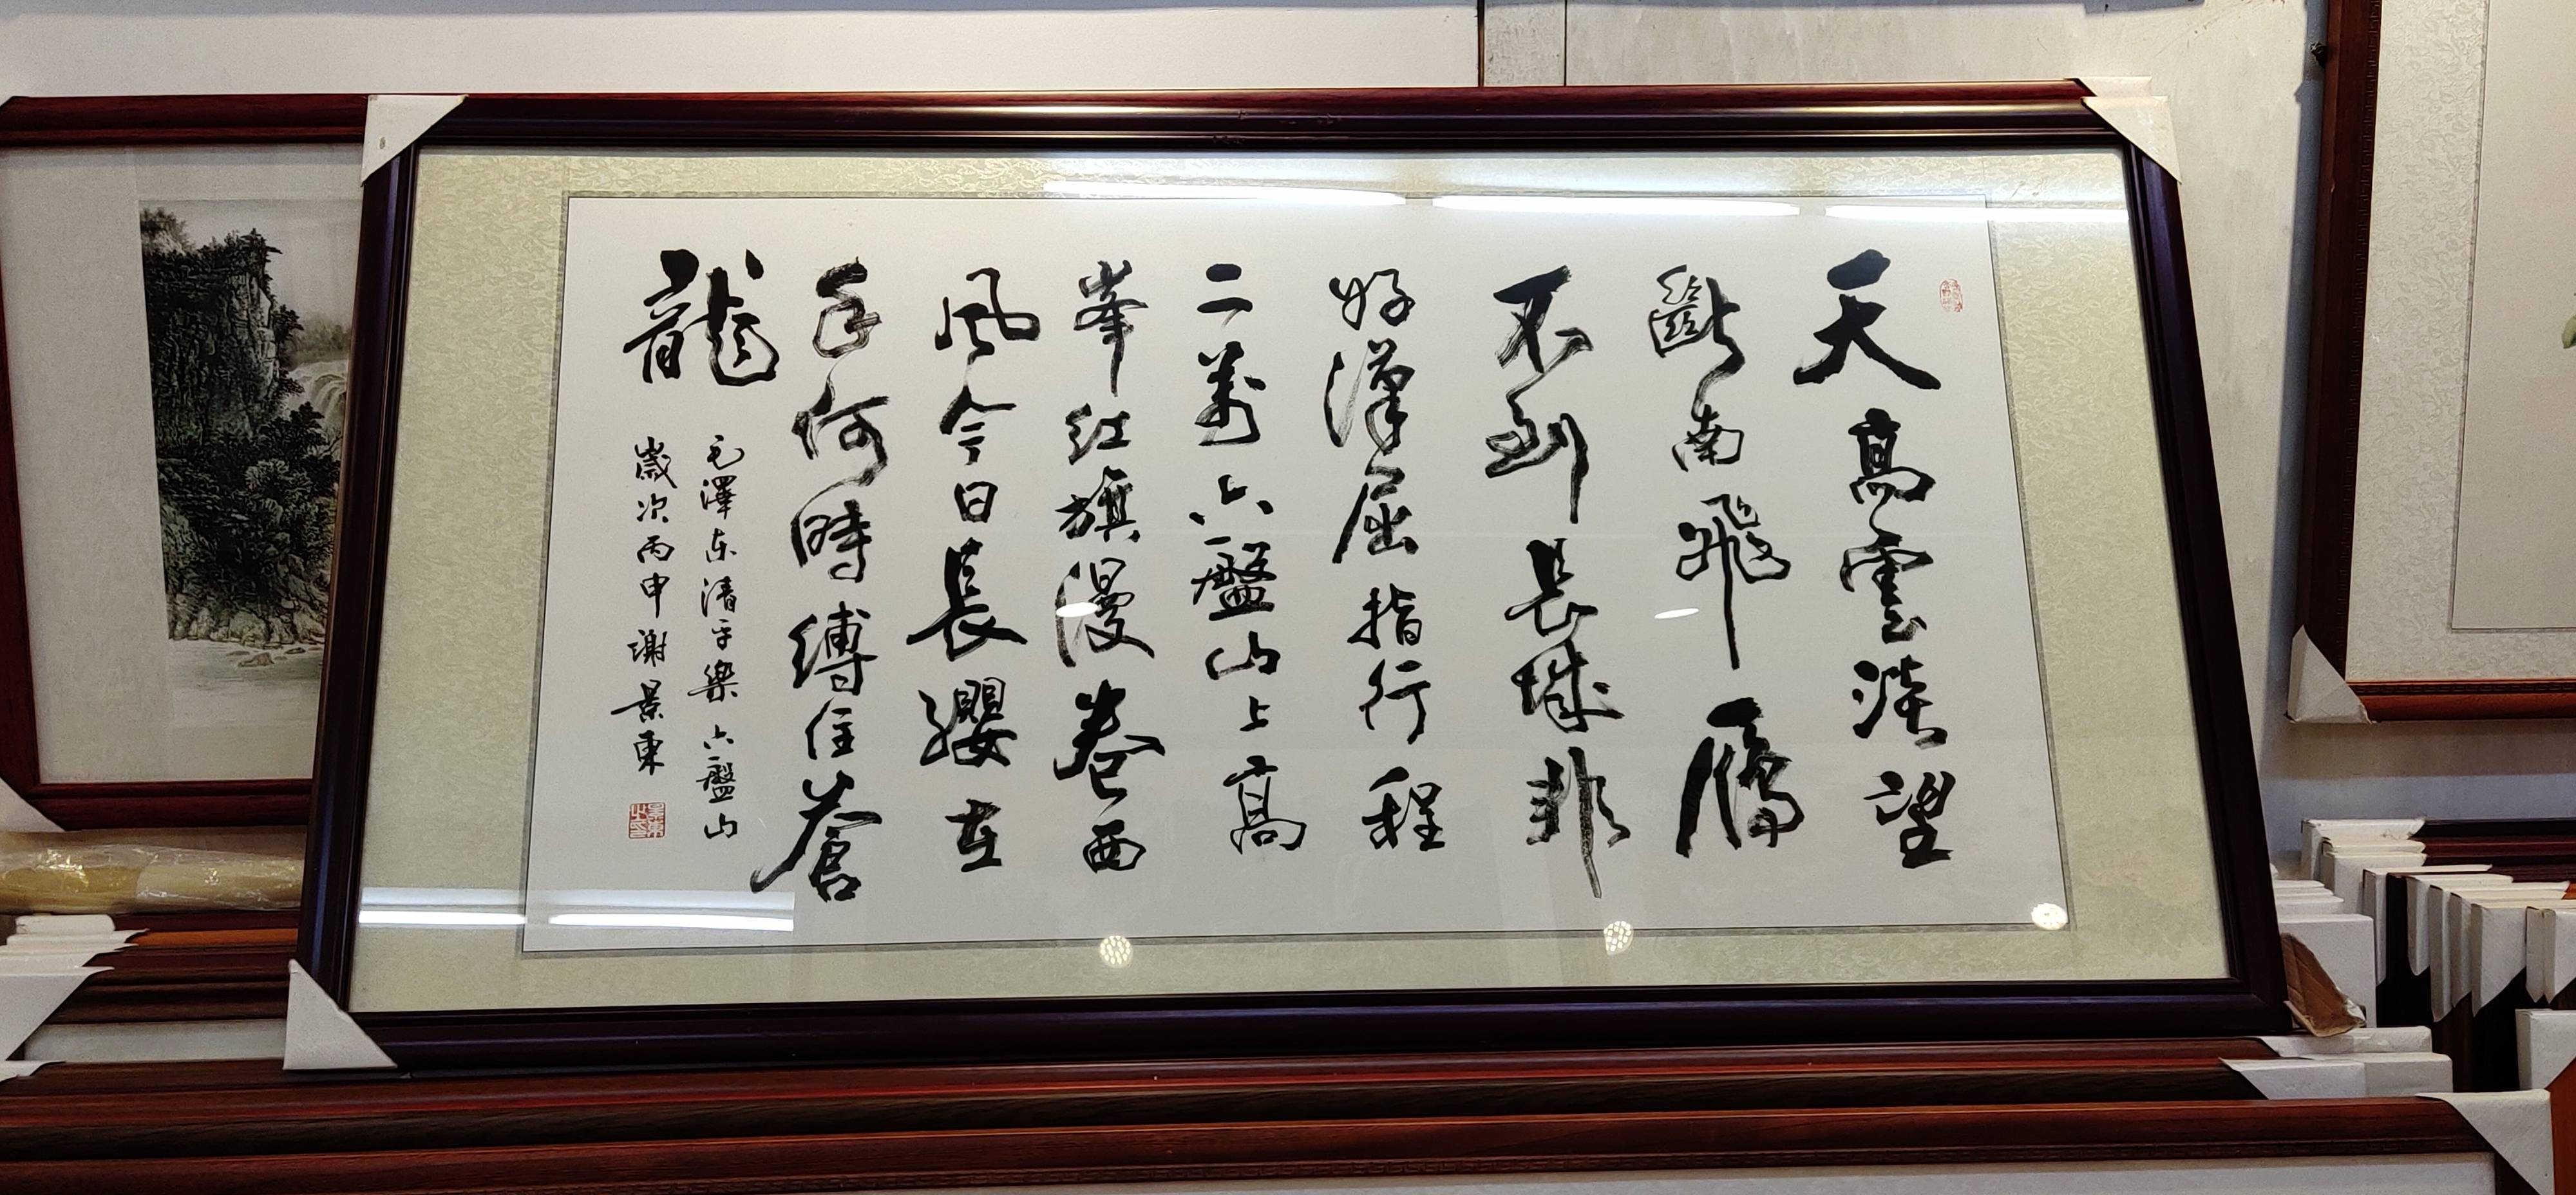 天高雲淡望
斷南飛雁
不到長城非
好漢屈指行程
二萬六盤山上高
峯紅旗漫卷西
風今日長纓在
手何時縛住蒼
龍
毛澤东清平樂六盤山
歲次丙申謝景東